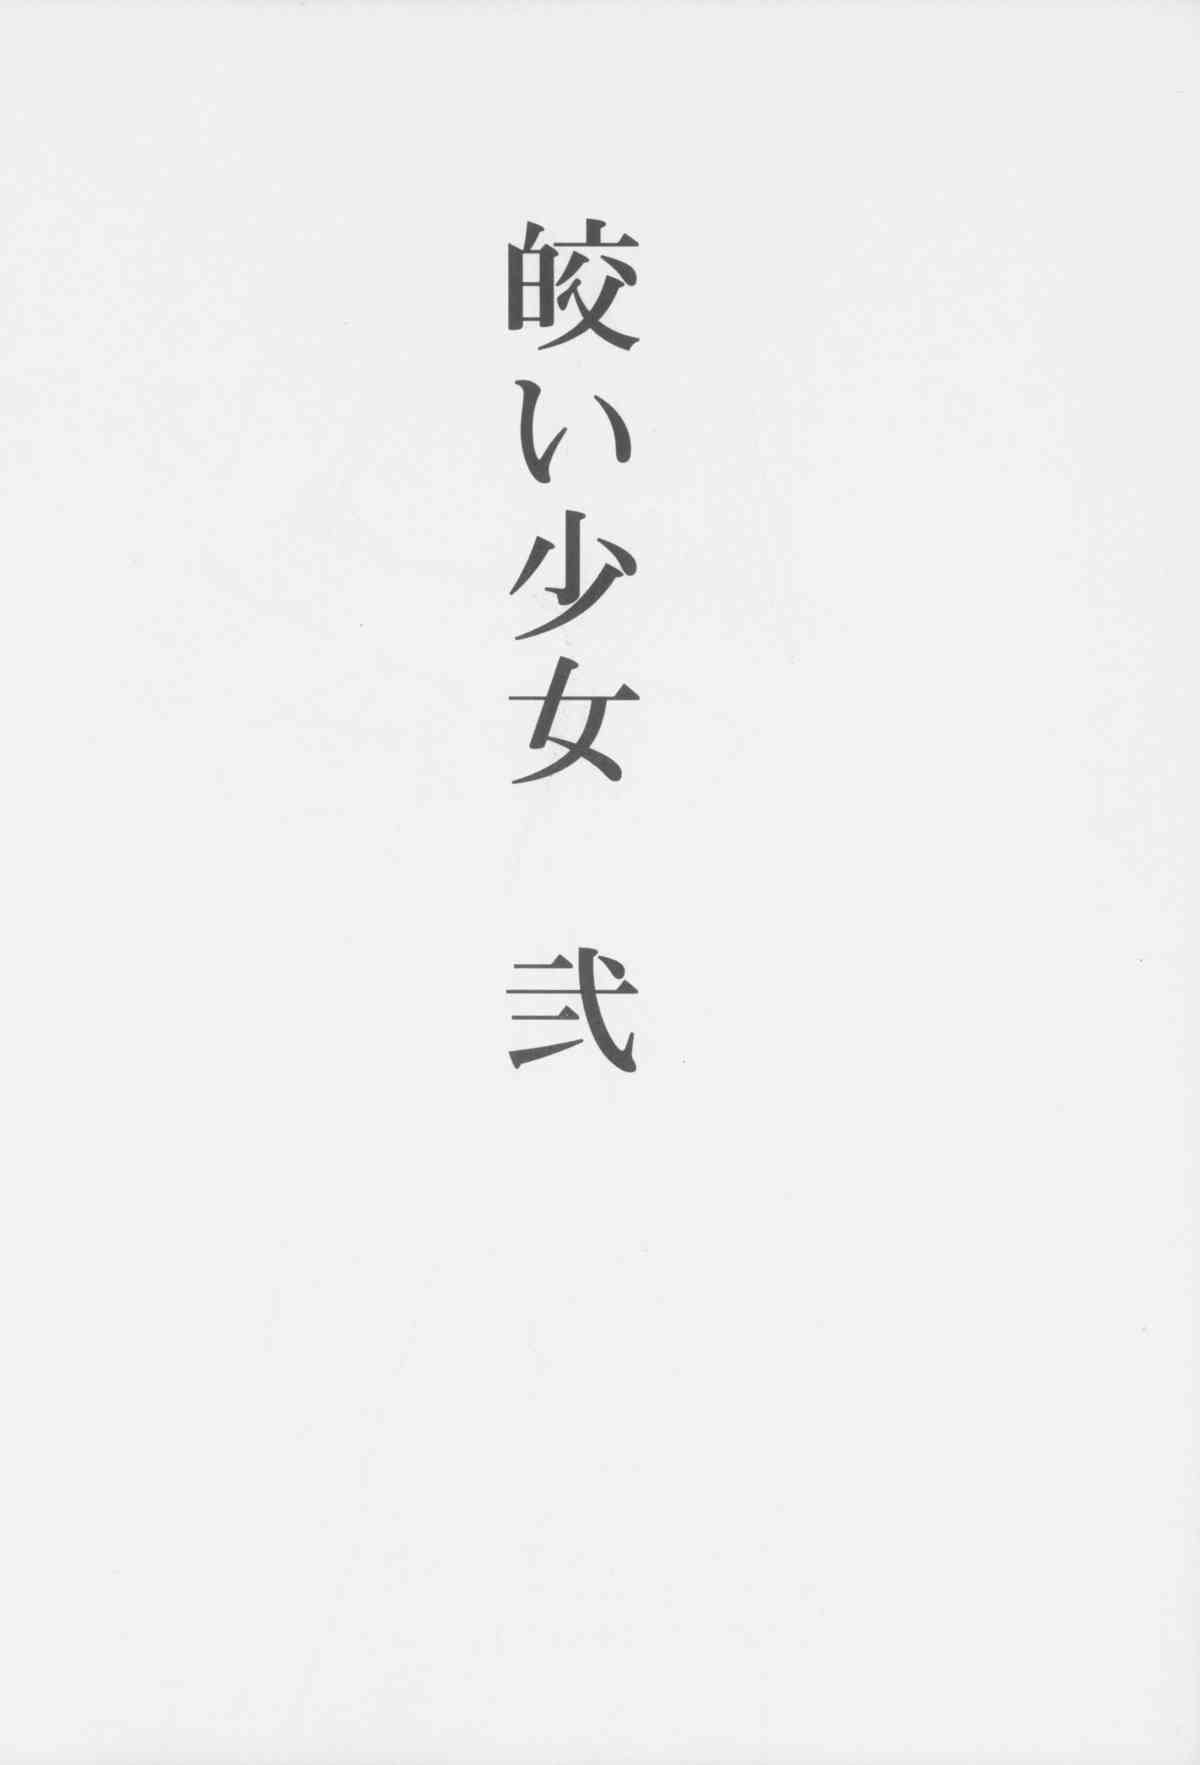 皎い少女　弐